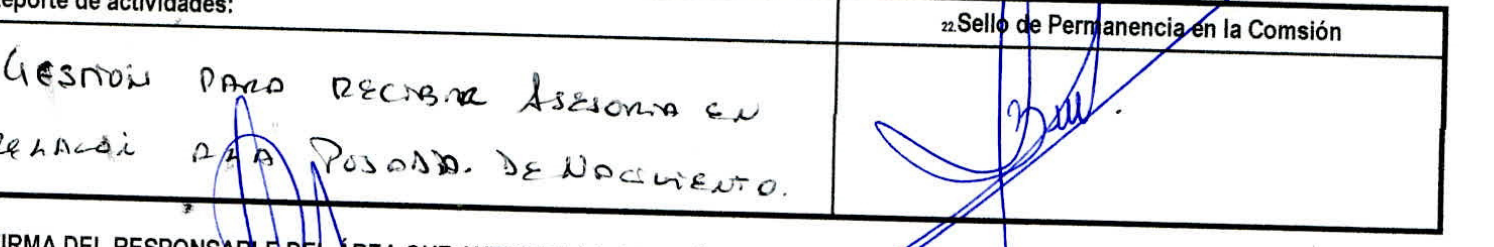 eporte de actividades:
22.Sello de Permanencia en la Comsión
GESTION PARA RECIBIR ASESORIA EN
RELACÓI A LA POSADA. DE NACIMIENTO.
IRMA DEL RESPONSABLE DEL ÁREA QUE